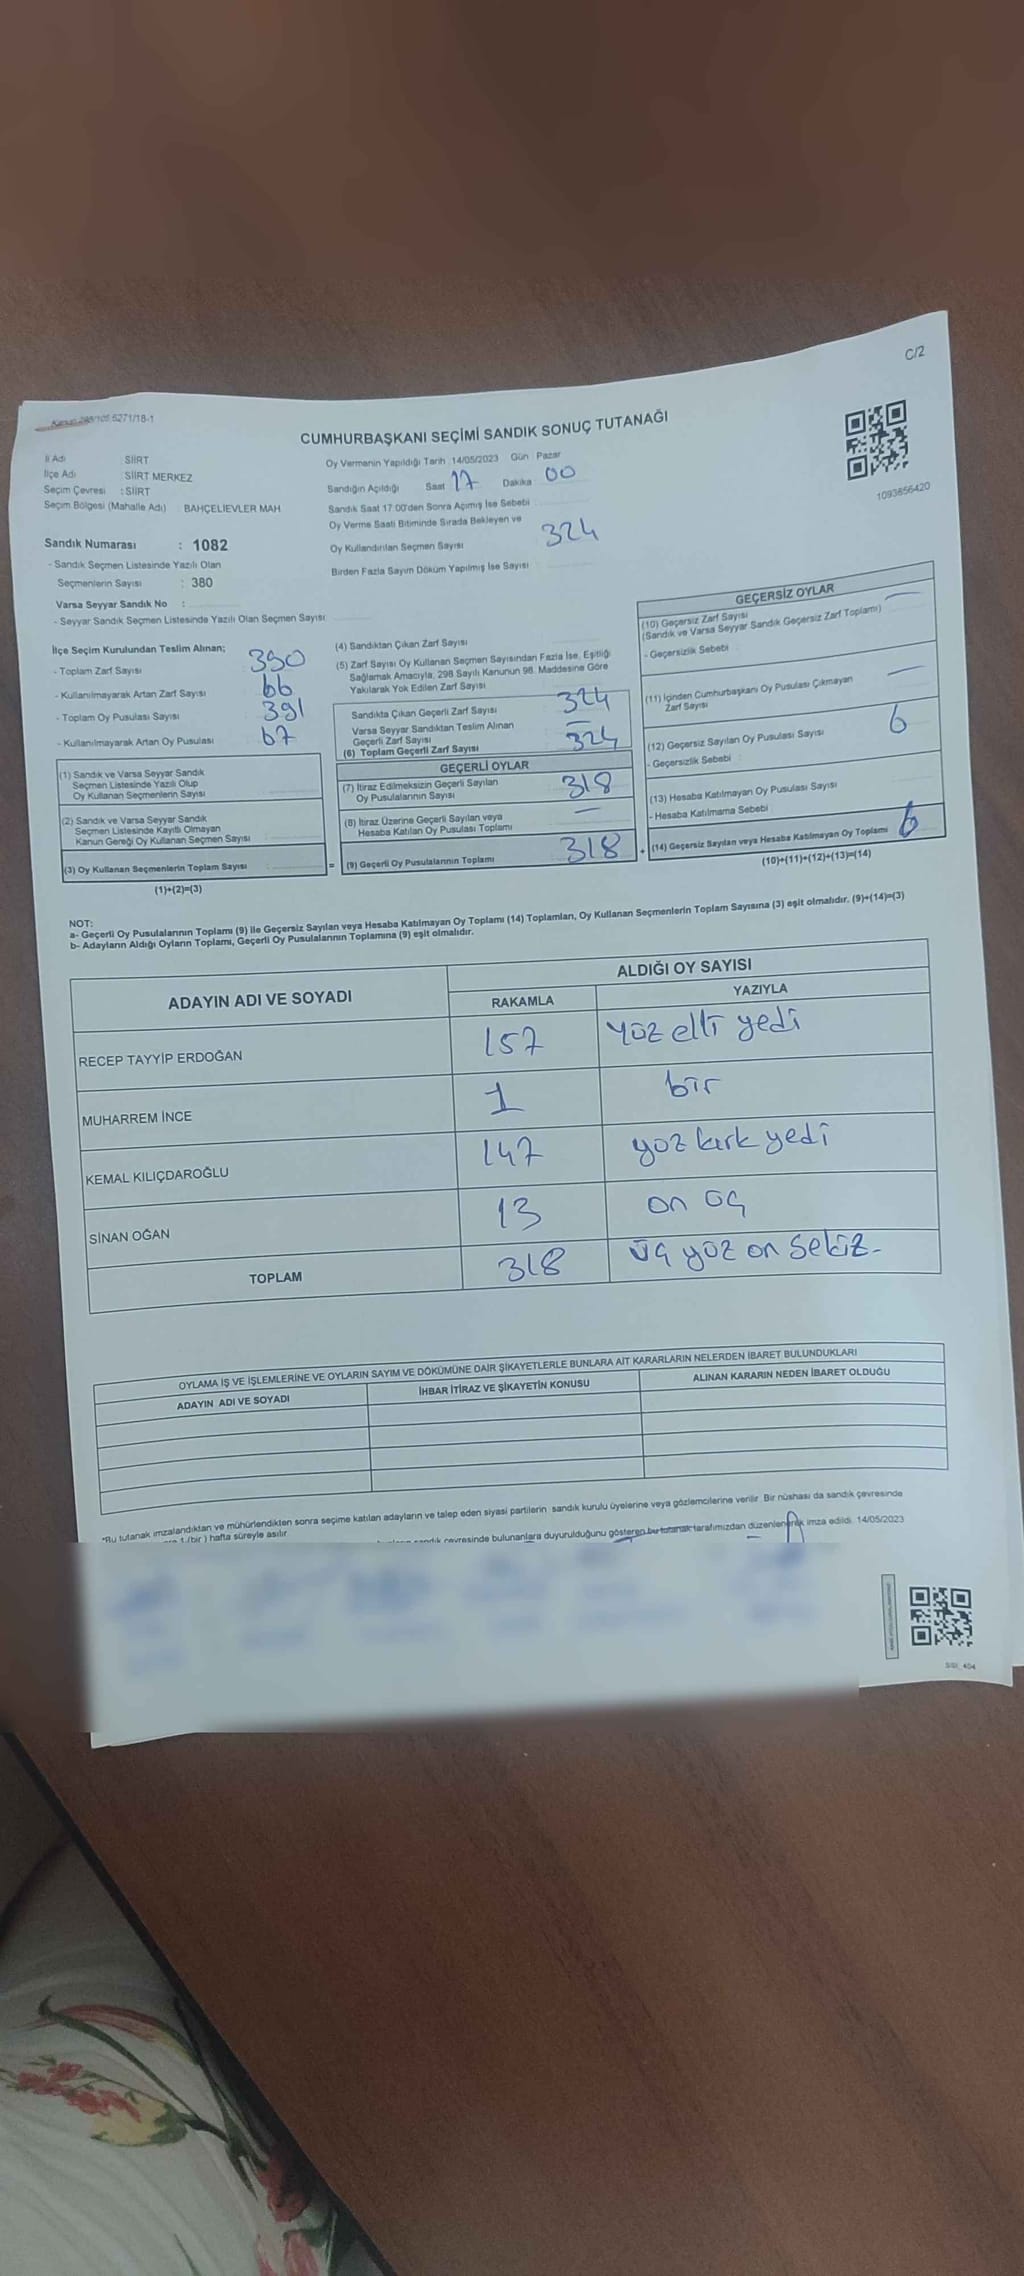 C/2
Kanun 298/105 6271/18-1
CUMHURBAŞKANI SEÇİMİ SANDIK SONUÇ TUTANAĞI
1093856420
İl Adı : SİİRT
İlçe Adı : SİİRT MERKEZ
Seçim Çevresi : SİİRT
Seçim Bölgesi (Mahalle Adı) : BAHÇELİEVLER MAH
Sandık Numarası : 1082
- Sandık Seçmen Listesinde Yazılı Olan
Seçmenlerin Sayısı : 380
Varsa Seyyar Sandık No :
- Seyyar Sandık Seçmen Listesinde Yazılı Olan Seçmen Sayısı
Oy Vermenin Yapıldığı Tarih 14/05/2023 Gün Pazar
Sandığın Açıldığı Saat 17 Dakika 00
Sandık Saat 17.00'den Sonra Açımış İse Sebebi
Oy Verme Saati Bitiminde Sırada Bekleyen ve
Oy Kullandırılan Seçmen Sayısı 324
Birden Fazla Sayım Döküm Yapılmış İse Sayısı
İlçe Seçim Kurulundan Teslim Alınan;
- Toplam Zarf Sayısı 390
- Kullanılmayarak Artan Zarf Sayısı 66
- Toplam Oy Pusulası Sayısı 391
- Kullanılmayarak Artan Oy Pusulası 67
(1) Sandık ve Varsa Seyyar Sandık
Seçmen Listesinde Yazılı Olup
Oy Kullanan Seçmenlerin Sayısı
(2) Sandık ve Varsa Seyyar Sandık
Seçmen Listesinde Kayıtlı Olmayan
Kanun Gereği Oy Kullanan Seçmen Sayısı
(3) Oy Kullanan Seçmenlerin Toplam Sayısı =
(1)+(2)=(3)
(4) Sandıktan Çıkan Zarf Sayısı
(5) Zarf Sayısı Oy Kullanan Seçmen Sayısından Fazla İse, Eşitliği
Sağlamak Amacıyla, 298 Sayılı Kanunun 98. Maddesine Göre
Yakılarak Yok Edilen Zarf Sayısı
Sandıkta Çıkan Geçerli Zarf Sayısı 324
Varsa Seyyar Sandıktan Teslim Alınan
Geçerli Zarf Sayısı —
(6) Toplam Geçerli Zarf Sayısı 324
GEÇERLİ OYLAR
(7) İtiraz Edilmeksizin Geçerli Sayılan
Oy Pusulalarının Sayısı 318
(8) İtiraz Üzerine Geçerli Sayılan veya
Hesaba Katılan Oy Pusulası Toplamı —
(9) Geçerli Oy Pusulalarının Toplamı 318 +
GEÇERSİZ OYLAR
(10) Geçersiz Zarf Sayısı —
(Sandık ve Varsa Seyyar Sandık Geçersiz Zarf Toplamı)
- Geçersizlik Sebebi
(11) İçinden Cumhurbaşkanı Oy Pusulası Çıkmayan —
Zarf Sayısı
(12) Geçersiz Sayılan Oy Pusulası Sayısı 6
- Geçersizlik Sebebi :
(13) Hesaba Katılmayan Oy Pusulası Sayısı
- Hesaba Katılmama Sebebi
(14) Geçersiz Sayılan veya Hesaba Katılmayan Oy Toplamı 6
(10)+(11)+(12)+(13)=(14)
NOT:
a- Geçerli Oy Pusulalarının Toplamı (9) ile Geçersiz Sayılan veya Hesaba Katılmayan Oy Toplamı (14) Toplamları, Oy Kullanan Seçmenlerin Toplam Sayısına (3) eşit olmalıdır. (9)+(14)=(3)
b- Adayların Aldığı Oyların Toplamı, Geçerli Oy Pusulalarının Toplamına (9) eşit olmalıdır.
ADAYIN ADI VE SOYADI ALDIĞI OY SAYISI
RAKAMLA YAZIYLA
RECEP TAYYİP ERDOĞAN 157 yüz elli yedi
MUHARREM İNCE 1 bir
KEMAL KILIÇDAROĞLU 147 yüz kırk yedi
SİNAN OĞAN 13 on üç
TOPLAM 318 üç yüz on sekiz-
OYLAMA İŞ VE İŞLEMLERİNE VE OYLARIN SAYIM VE DÖKÜMÜNE DAİR ŞİKAYETLERLE BUNLARA AİT KARARLARIN NELERDEN İBARET BULUNDUKLARI
ADAYIN ADI VE SOYADI İHBAR İTİRAZ VE ŞİKAYETİN KONUSU ALINAN KARARIN NEDEN İBARET OLDUĞU
*Bu tutanak imzalandıktan ve mühürlendikten sonra seçime katılan adayların ve talep eden siyasi partilerin sandık kurulu üyelerine veya gözlemcilerine verilir. Bir nüshası da sandık çevresinde
1 (bir) hafta süreyle asılır.
sandık çevresinde bulunanlara duyurulduğunu gösteren bu tutanak tarafımızdan düzenlenerek imza edildi. 14/05/2023